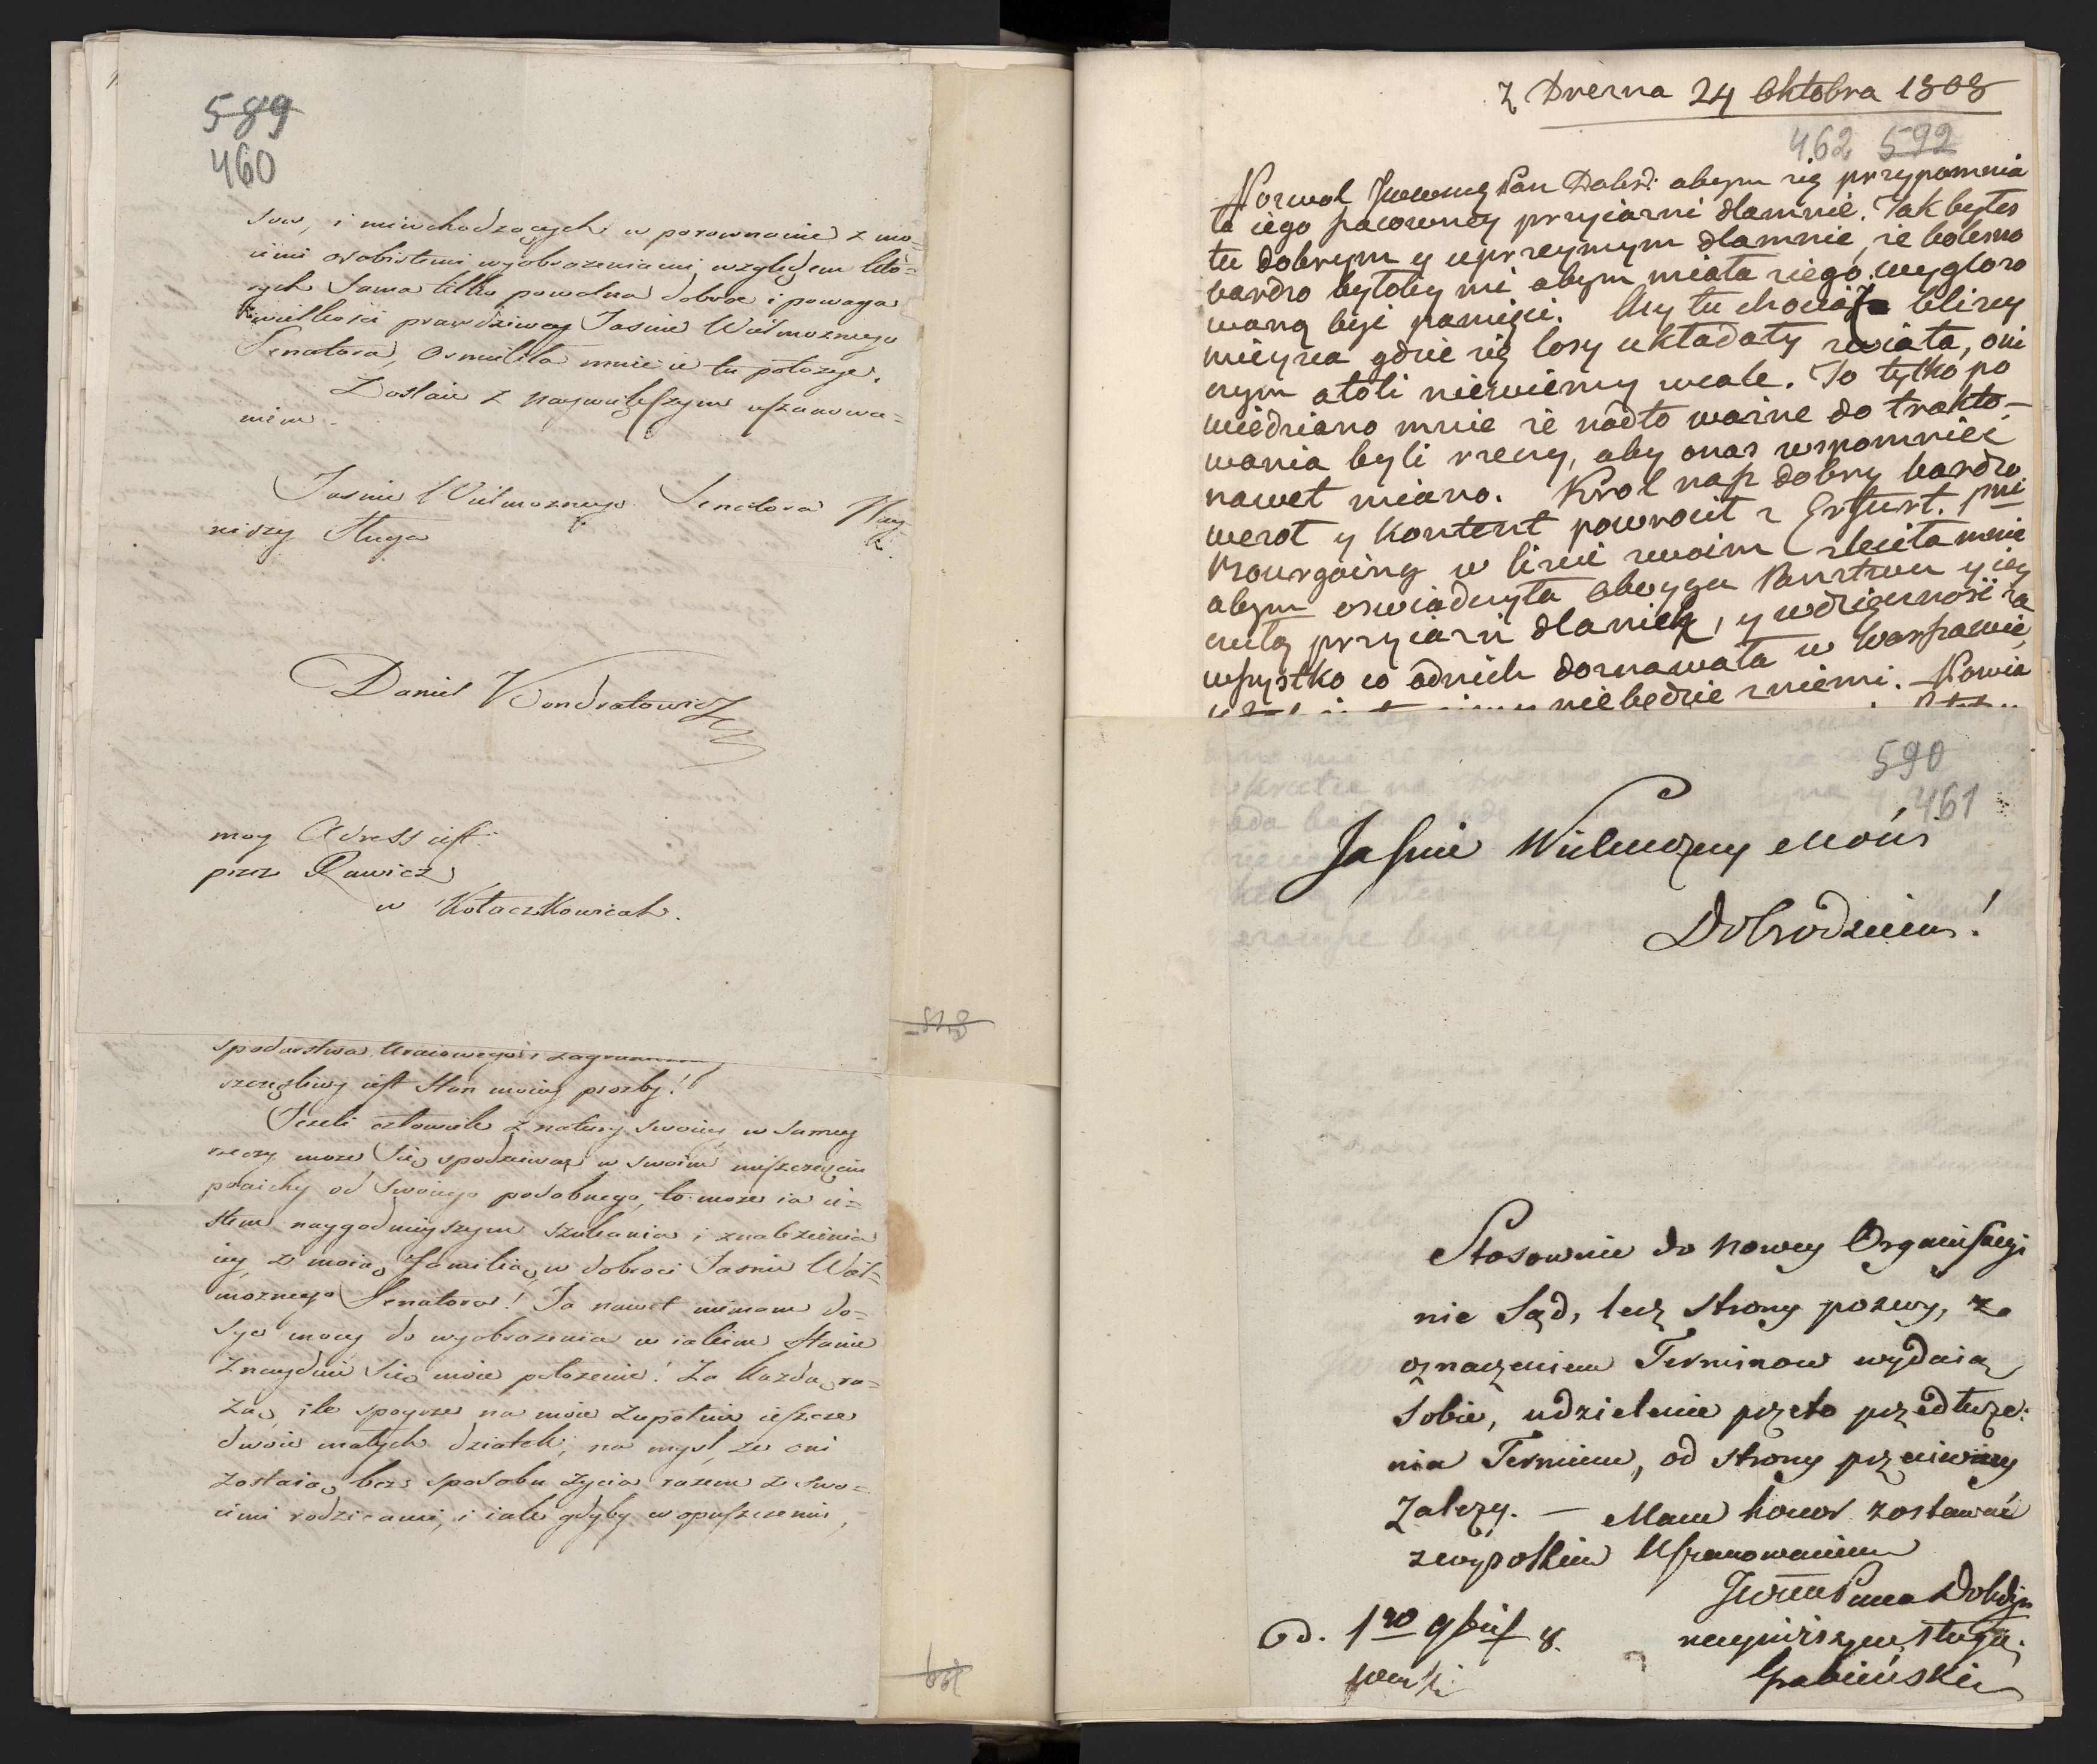 589
460
sow, i niewchodzących w porownanie z mo=
iemi osobistemi wyobrażeniami, względem któ=
rych Sama tylko powolna dobroć i powaga
wielkości prawdziwey Jaśnie Wielmożnego
Senatora, Ośmieliła mnie ie tu położyć.
Zostaię z naywyższym uszanowa=
niem.
Jaśnie Wielmożnego Senatora Nay
niższy Sługa
Daniel Kondratowicz
moy Adress iest
przez Rawicz
w Kołaczkowicach.
spodarstwa kraiowego i
szczęśliwy iest stan moiey prozby!
Jeżeli człowiek z natury swoiey, w samey
rzeczy może się spodziewać w swoim nieszczęściu
pociechy od swoiego podobnego, to może ia ie=
stem naygodnieyszym szukania i znalezienia
iey, z moią familią, w dobroci Jaśnie Wiel=
możnego Senatora! Ja nawet niemam do=
syć mocy do wyobrażenia w iakim stanie
znayduie się moie położenie! Za każdą ra=
zą, ile spoyrzę na moie zupełnie ieszcze
dwoie małych dziatek, na myśl, że oni
zostaią bez sposobu życia razem z swo=
iemi rodzicami, i iak gdyby w opuszczeniu,
Z Drezna 24 Oktobra 1808
462 592
Pozwol Jwwny Pan Dobrd: abym się przypomnia
ła iego szacowney przyiazni dlamnie. Jak byłes
tu dobrym y uprzeymym dlamnie, że bolesno
bardzo byłoby mi abym miała ziego wygloro
waną być pamięci. My tu chociaż blizey
mieysca gdzie się losy układały swiata, oni
czym atoli niewiemy wcale. To tylko po
wiedziano mnie że nadto wazne do trakto-
wania byli rzeczy, aby onas wspomnieć
nawet miano. Krol nasz dobry bardzo
wesoł y kontent powrocił z Erfurt. Pni
Bourgoing w liscie swoim zleciła mnie
abym oswiadczyła Oboygu Panstwu y iey
czułą przyiazń dlanich, y wdzięczność za
wszystko co odnich doznawała w Warszawie,
niebędzie zniemi. Powia
590
461
Jaśnie Wielmożny Mości
Dobrodzieiu!
Stosownie do nowey Organisacyi
nie Sąd, lecz strony pozwy, za
oznaczeniem Terminow wydaią
Sobie, udzielenie przeto przedłuże:
nia Terminu, od strony przeciwney
Zależy. — Mam honor zostawać
z wysokiem Uszanowaniem
JWWM Pana Dobdz
nayniższym sługą.
Grabieński